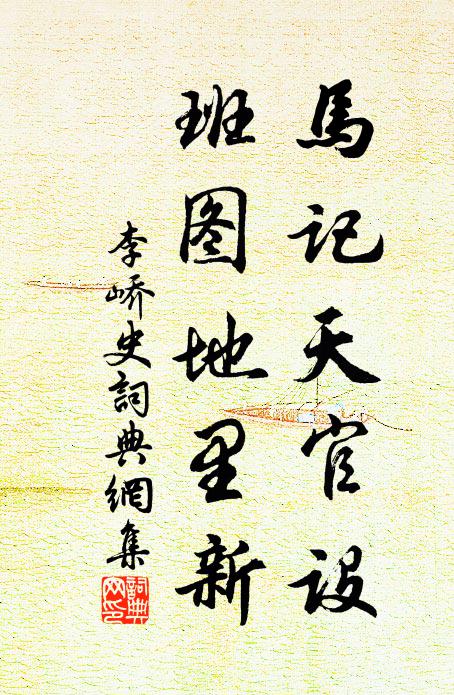 馬记天官设
班图地里新
李峤史詞典網集
詞典